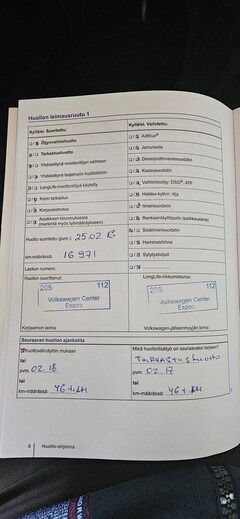 Huollon leimausruutu 1
Kyllä/ei. Suoritettu:
Öljynvaihtohuolto
Tarkastushuolto
Yhdistettynä moottoriöljyn vaihtoon
Yhdistettynä laajempiin huoltotöihin
LongLife-moottoriöljyä käytetty
Korin tarkastus
Korjauskehotus
Asiakkaan toivomuksesta
(merkintä myös työmääräykseen)
Kyllä/ei. Vaihdettu:
AdBlue®
Jarruneste
Dieselpolttoainesuodatin
Kaasusuodatin
Vaihteistoöljy: DSG®, ATF
Haldex-kytkin: öljy
Ilmansuodatin
Sisäilmansuodatin
Hammashihna
Sytytystulpat
Huolto suoritettu (pvm.) 25.02.16
km-määrässä: 16 971
Laskun numero:
Huollon suorittanut:
205 112
Volkswagen Center
Espoo
Korjaamon leima
LongLife-liikkumisturva:
205 112
Volkswagen Center
Espoo
Volkswagen-jälleenmyyjän leima
Seuraavan huollon ajankohta
huoltovälinäytön mukaan
tai
pvm: 02.18
tai
km-määrässä: 46 t.km
Mikä huolto/lisätyö on seuraavaksi tarpeen?
Tarkastushuolto
pvm: 02.17
tai
km-määrässä: 46 t.km
6 Huolto-ohjelma